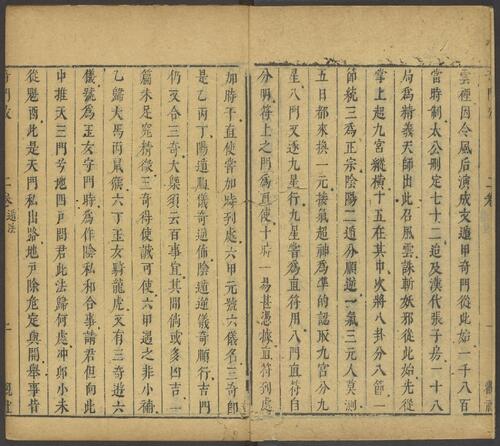 雲裡因令風后演成文遁甲奇門從此始一千八百
當時制太公刪定七十二迨及漢代張子房一十八
局爲精義天師出此召風雲誅斬妖邪從此始先從
掌上起九宮縱橫十五在其中次將八卦分八節一
節統三爲正宗陰陽二遁分順逆一氣三元人莫測
五日都來換一元接氣超神爲準的認取九宮分九
星八門又逐九星行九星嘗爲直符用八門直符自
分明符上之門爲直使十時一易甚憑據直符列處
加時干直使嘗加時列處六甲元號六儀名三奇即
是乙丙丁陽遁順儀奇逆佈陰遁逆儀奇順行吉門
仍又合三奇大槩須云百事宜其間倘或多凶吉一
篇未足窮精微三奇得使誠可使六甲遇之非小補
乙歸犬馬丙鼠猴六丁玉女騎龍虎又有三奇遊六
儀號爲玉女守門時爲作陰私和合事請君但向此
中推天三門兮地四戸問君此法歸何處冲夘小未
從魁酉此是天門私出路地戸除危定與開舉事皆
二卷遁法 二